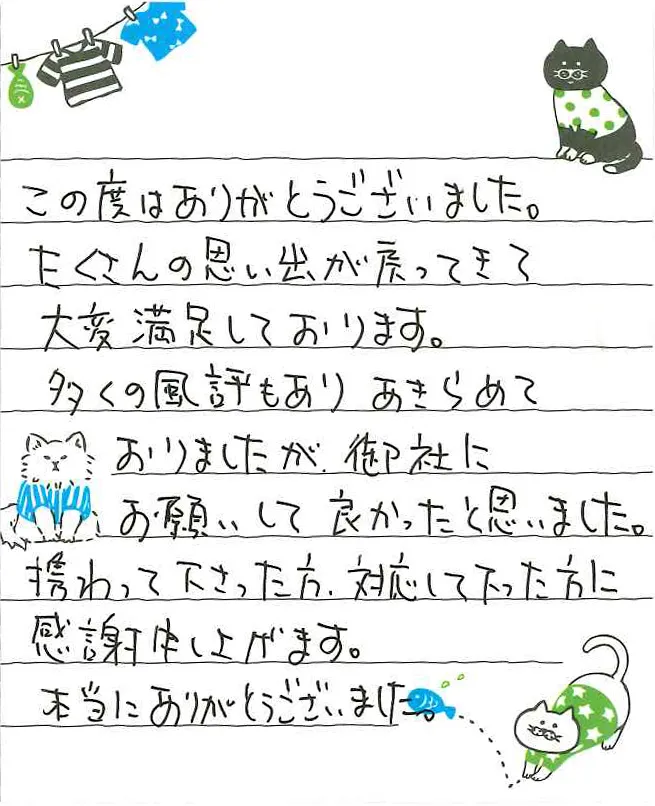 この度はありがとうございました。
たくさんの思い出が戻ってきて
大変満足しております。
多くの風評もあり あきらめて
おりましたが、御社に
お願いして良かったと思いました。
携わって下さった方、対応して下った方に
感謝申し上げます。
本当にありがとうございました。